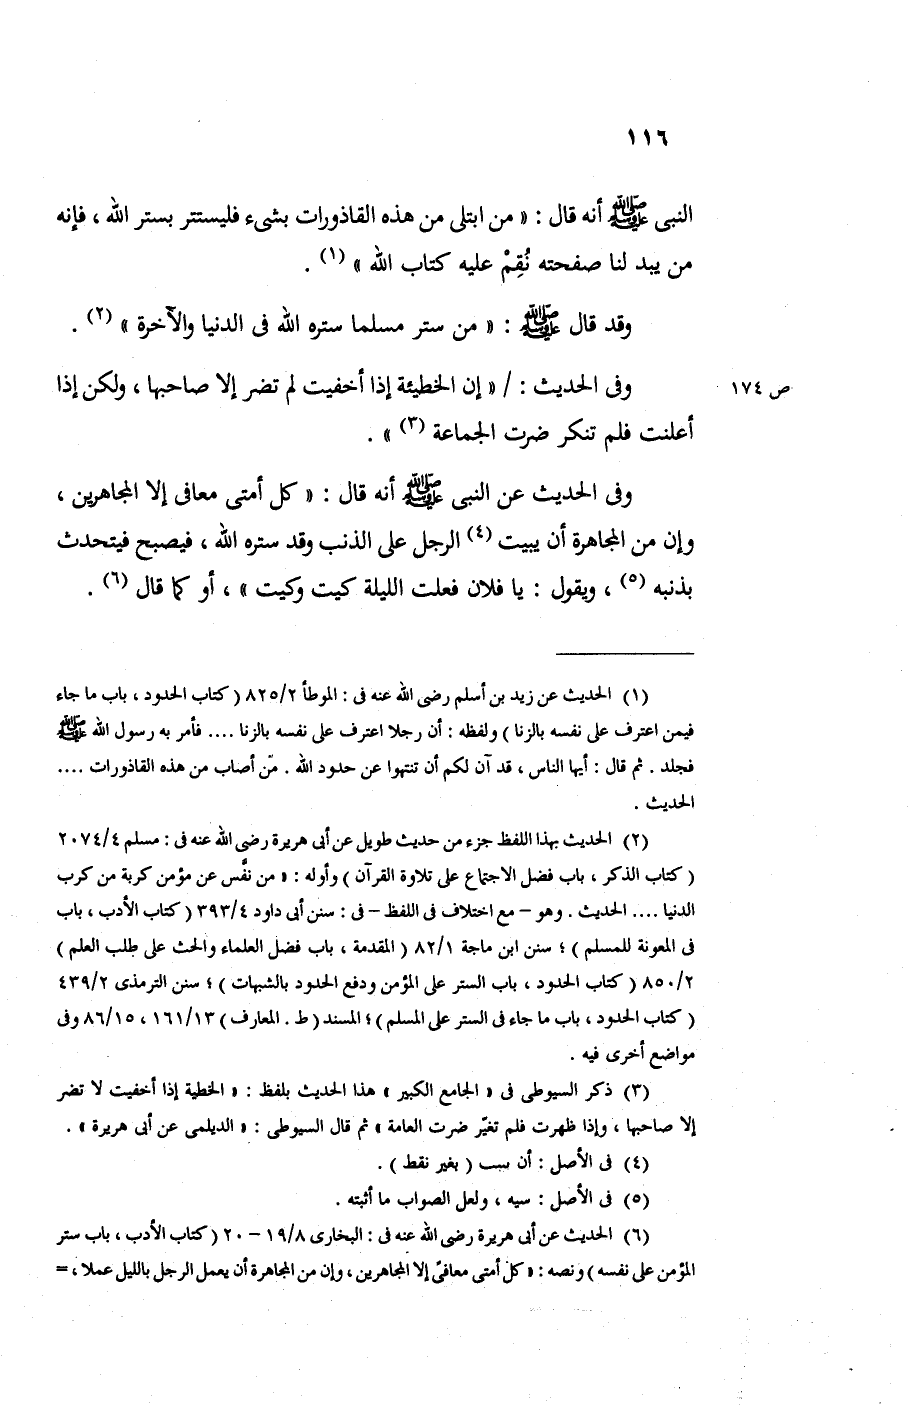 ١١٦
النبى ﷺ أنه قال : « من ابتلى من هذه القاذورات بشىء فليستتر بستر الله ، فإنه
من يبد لنا صفحته نُقِمْ عليه كتاب الله » (١) .
وقد قال ﷺ : « من ستر مسلما ستره الله فى الدنيا والآخرة » (٢) .
وفى الحديث : / « إن الخطيئة إذا أخفيت لم تضر إلا صاحبها ، ولكن إذا
ص ١٧٤
أعلنت فلم تنكر ضرت الجماعة (٣) » .
وفى الحديث عن النبى ﷺ أنه قال : « كل أمتى معافى إلا المجاهرين ،
وإن من المجاهرة أن يبيت (٤) الرجل على الذنب وقد ستره الله ، فيصبح فيتحدث
بذنبه (٥) ، ويقول : يا فلان فعلت الليلة كيت وكيت » ، أو كما قال (٦) .
(١) الحديث عن زيد بن أسلم رضى الله عنه فى : الموطأ ٨٢٥/٢ ( كتاب الحدود ، باب ما جاء
فيمن اعترف على نفسه بالزنا ) ولفظه : أن رجلا اعترف على نفسه بالزنا .... فأمر به رسول الله ﷺ
فجلد . ثم قال : أيها الناس ، قد آن لكم أن تنتهوا عن حدود الله . مَن أصاب من هذه القاذورات ....
الحديث .
(٢) الحديث بهذا اللفظ جزء من حديث طويل عن أبى هريرة رضى الله عنه فى : مسلم ٢٠٧٤/٤
( كتاب الذكر ، باب فضل الاجتماع على تلاوة القرآن ) وأوله : « من نفَّس عن مؤمن كربة من كرب
الدنيا .... الحديث . وهو – مع اختلاف فى اللفظ – فى : سنن أبى داود ٣٩٣/٤ ( كتاب الأدب ، باب
فى المعونة للمسلم ) ؛ سنن ابن ماجة ٨٢/١ ( المقدمة ، باب فضل العلماء والحث على طلب العلم )
٨٥٠/٢ ( كتاب الحدود ، باب الستر على المؤمن ودفع الحدود بالشبهات ) ؛ سنن الترمذى ٤٣٩/٢
( كتاب الحدود ، باب ما جاء فى الستر على المسلم ) ؛ المسند ( ط . المعارف ) ١٦١/١٣ ، ٨٦/١٥ وفى
مواضع أخرى فيه .
(٣) ذكر السيوطى فى « الجامع الكبير » هذا الحديث بلفظ : « الخطية إذا أخفيت لا تضر
إلا صاحبها ، وإذا ظهرت فلم تغيّر ضرت العامة » ثم قال السيوطى : « الديلمى عن أبى هريرة » .
(٤) فى الأصل : أن سب ( بغير نقط ) .
(٥) فى الأصل : سيه ، ولعل الصواب ما أثبته .
(٦) الحديث عن أبى هريرة رضى الله عنه فى : البخارى ١٩/٨ – ٢٠ ( كتاب الأدب ، باب ستر
المؤمن على نفسه ) ونصه : « كل أمتى معافىً إلا المجاهرين ، وإن من المجاهرة أن يعمل الرجل بالليل عملا ، =